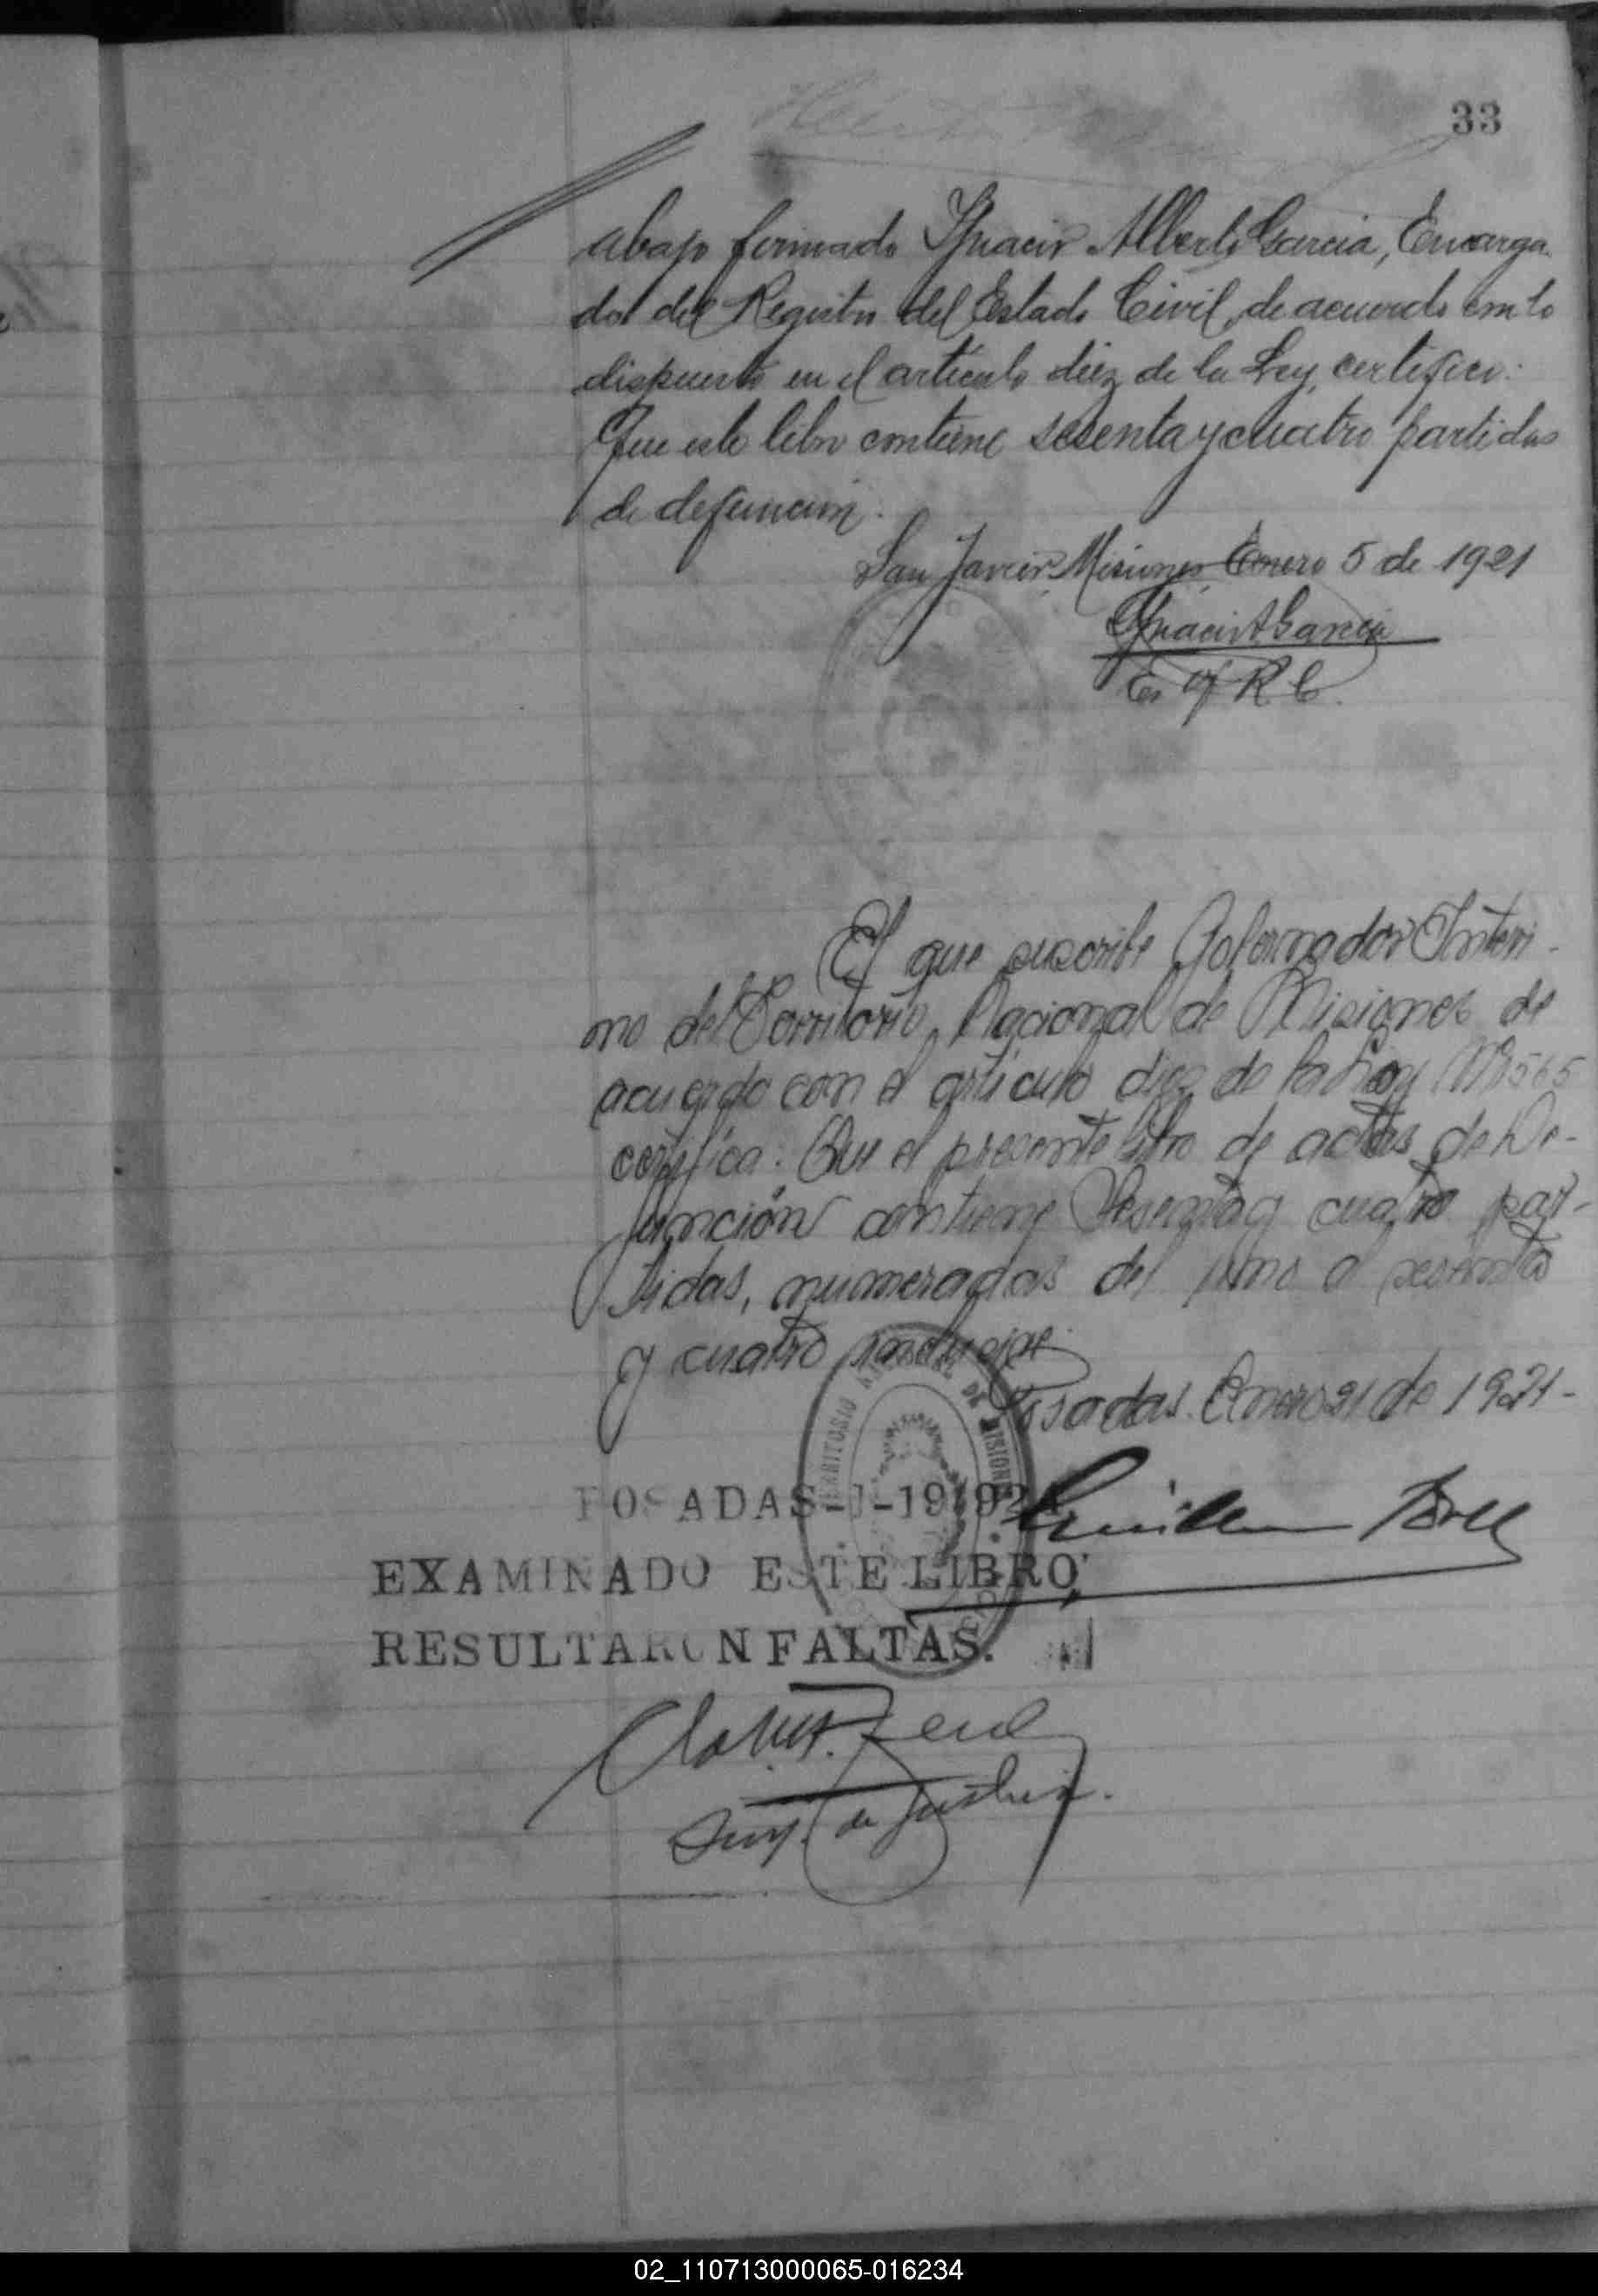 33
abajo firmado Ygnacio Alberto Garcia, Encarga
do del Registro del Estado Civil, de acuerdo con lo
dispuesto en el artículo diez de la Ley, certifico:
Que este libro contiene sesenta y cuatro partidas
de defuncion.
San Javier, Misiones Enero 5 de 1921
Ygnacio A Garcia
R C
El que suscribe Gobernador Interi-
no del Territorio Nacional de Misiones de
acuerdo con el artículo diez de la Ley 1565
certifica: Que el presente libro de actas de De-
función contiene Sesenta y cuatro par-
tidas, numeradas del uno al sesenta
y cuatro inclusive.
Posadas. Enero 21 de 1921-
TERRITORIO NACIONAL DE MISIONES
POSADAS
EXAMINADO ESTE LIBRO,
RESULTARON FALTAS.
de Justicia.
02_110713000065-016234